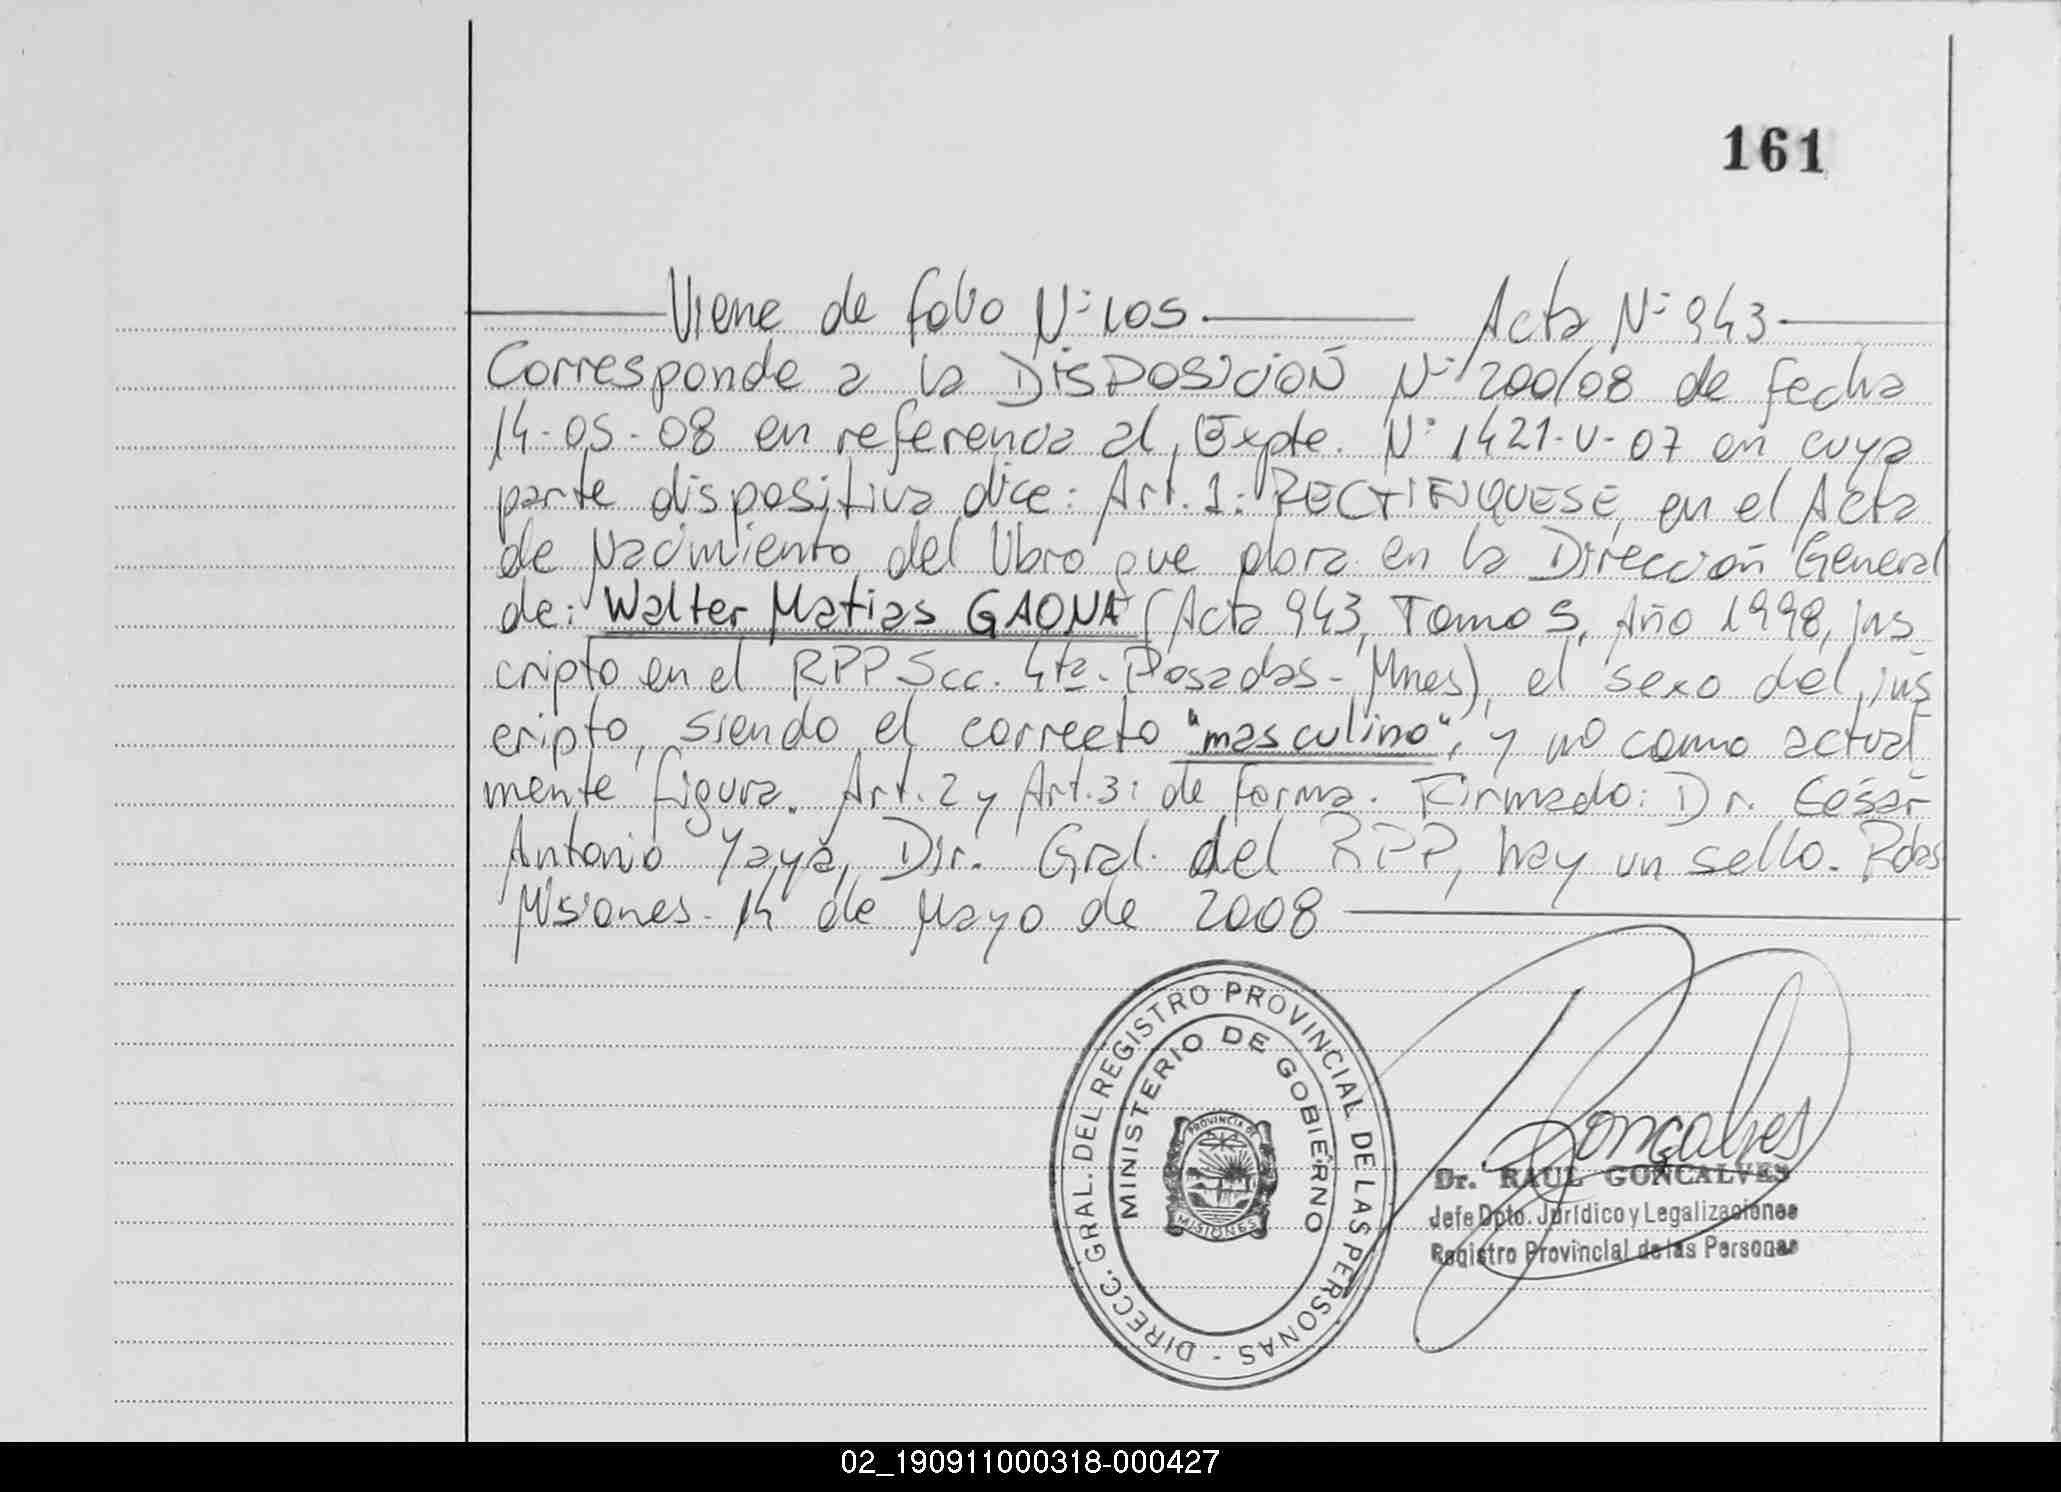 161
Viene de folio Nº 105 Acta Nº 943
Corresponde a la DISPOSICIÓN Nº 200/08 de fecha
14-05-08 en referencia al Expte. Nº 1421-V-07 en cuya
parte dispositiva dice: Art. 1: RECTIFIQUESE, en el Acta
de Nacimiento del libro que obra en la Dirección General
de: Walter Matias GAONA (Acta 943, Tomo 5, Año 1998, ins
cripto en el RPP Scc. 4ta. Posadas - Mnes), el sexo del ins
cripto, siendo el correcto "masculino", y no como actual
mente figura. Art. 2 y Art. 3: de forma. Firmado: Dr. César
Antonio Yaya, Dir. Gral. del RPP, hay un sello. Pdas
Misiones. 14 de Mayo de 2008
DIRECC. GRAL. DEL REGISTRO PROVINCIAL DE LAS PERSONAS -
MINISTERIO DE GOBIERNO
PROVINCIA DE
MISIONES
Goncalves
Dr. RAUL GONCALVES
Jefe Dpto. Jurídico y Legalizaciones
Registro Provincial de las Personas
02_190911000318-000427